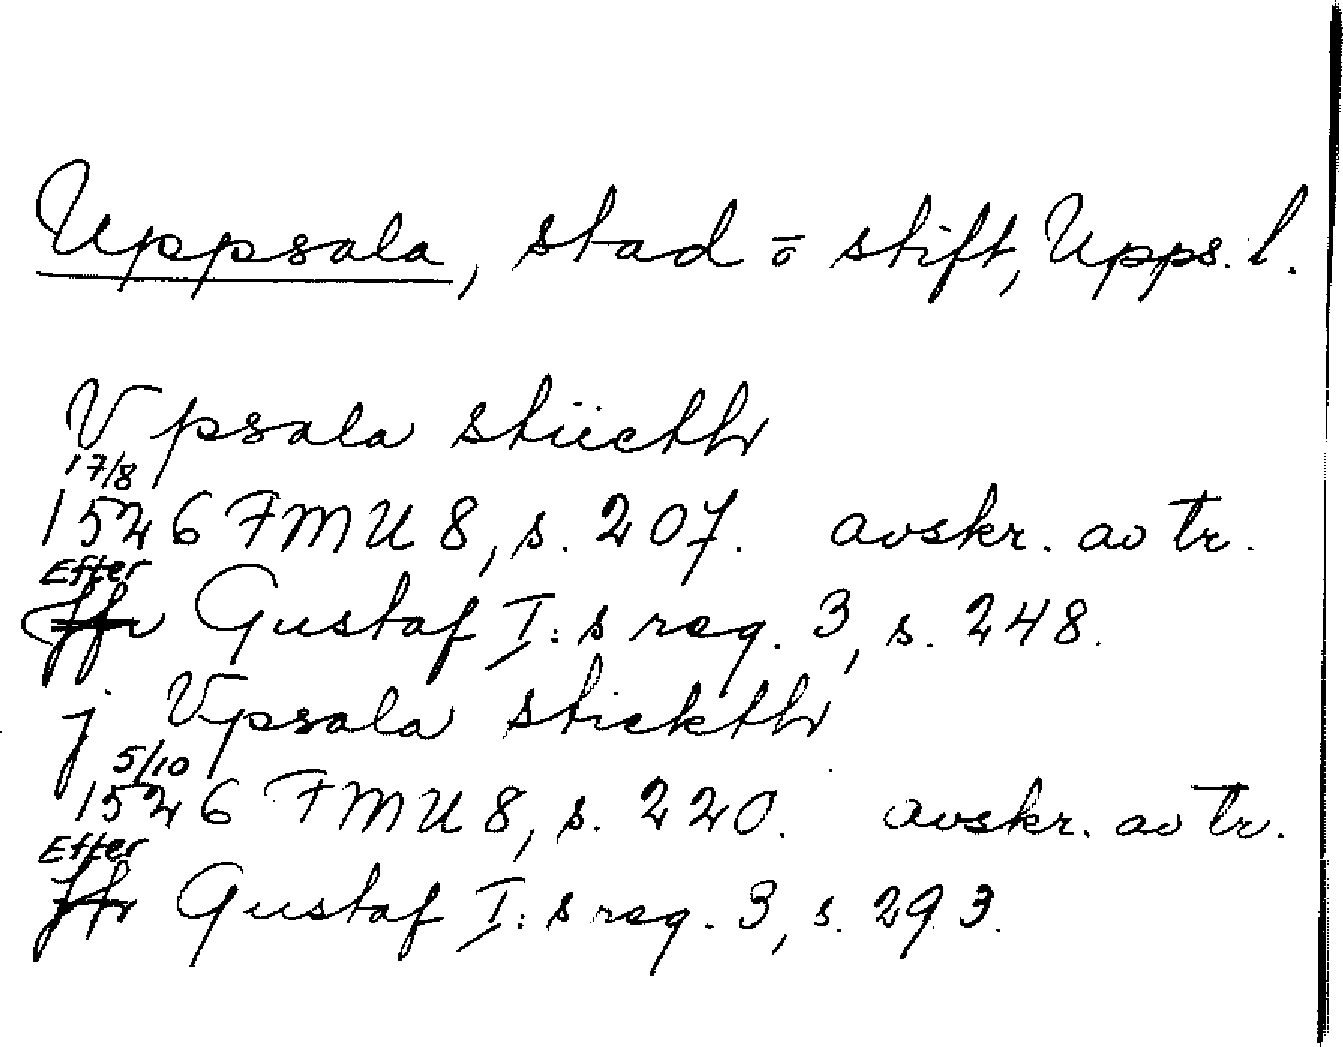 Uppsala, stad o stift, Upps. l.
Vpsala stiicthr
17/8
1526 FMU 8, s. 207. avskr. av tr.
Efter
Jfr Gustaf I:s reg. 3, s. 248.
j Vpsala stickthr
5/10
1526 FMU 8, s. 220. avskr. av tr.
Efter
Jfr Gustaf I:s reg. 3, s. 293.